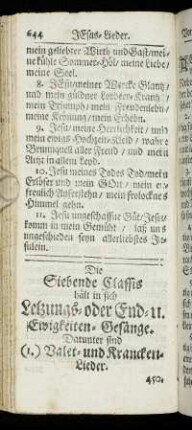 644 JEsus-Lieder.
mein geliebter Wirth und Gast/mei-
ne kühle Sommer-Höl/ meine Liebe/
meine Seel.
8. JEsu/meiner Wercke Glantz/
und mein güldner Lorbeer-Krantz/
mein Triumph/ mein Freudenlehn/
meine Krönung/ mein Erhebn.
9. Jesu/meine Herrlichkeit/ und
mein ewigs Hochzeit-Kleid/ wahre
Brunnquell aller Freud/ und mein
Artzt in allem Leyd.
10. Jesu meines Todes Tod/mein
Erlöser und mein GOtt/ mein
Auferstehn/ mein frolockne
Himmel gehn.
11. Jesu ungeschaffne Güt/Jesu/
komm in mein Gemüht/ laß uns
ungeschieden seyn allerliebstes Je-
sulein.
Die
Siebende Classis
hält in sich
Letzungs- oder End- u.
Ewigkeiten- Gesänge.
Darunter sind
(1.) Valet- und Krancken-
Lieder.
450.